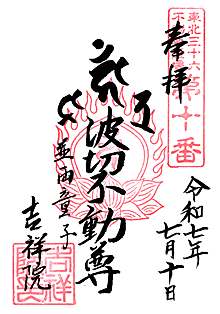 奉拝
東北三十六
第十番
令和七年
七月十日
波切不動尊
並両童子
吉祥院
吉祥